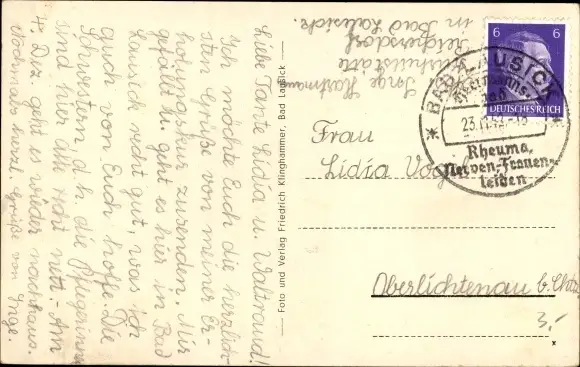 Liebe Tante Lidia u. Waltraud!
Ich möchte Euch die herzlich-
sten Grüße von meiner Er-
holungskur zusenden. Mir
gefällt u. geht es hier in Bad
Lausick recht gut, was ich
auch von Euch hoffe. Die
Schwestern d. h. die Pflegerinnen
sind hier alle sehr nett. Am
4. Dez. geht es wieder nachhaus.
Nochmals herzl. Grüße von Inge.
Foto und Verlag Friedrich Klinghammer, Bad Lausick
Inge Hartmann
Reigersdorf
in Bad Lausick.
6 6
DEUTSCHES REICH
BAD LAUSICK
Hermanns-
bad
23.11.
Rheuma,
Nerven-, Frauen-
leiden
Frau
Lidia
Oberlichtenau b. Chtz
3,-
x